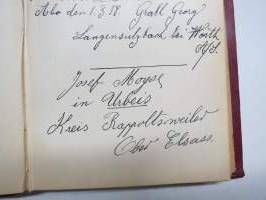 Abo den 1.3.18. Grall Georg
Langensulzbach bei Wörth
Josef Moyse
in Urbeis
Kreis Rappoltsweiler
Ober Elsass.